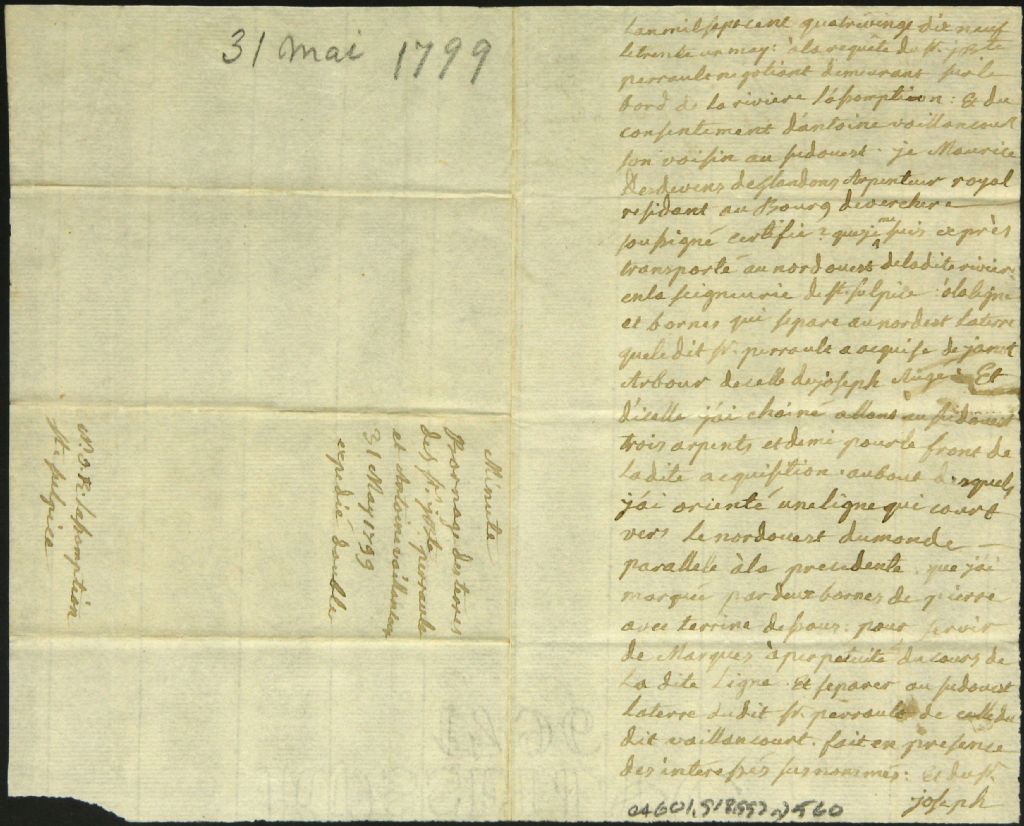 31 mai 1799
Lan mil sept cent quatrevingt dix neuf
le trente un may: à la requête du Sr. jBte
perrault negotiant demeurant sur le
bord de la riviere l'assomption: Et du
consentement d'antoine vaillancourt
son voisin au sudouest. je Maurice
Desdevens deglandons Arpenteur royal
residant au Bourg deverchere
soussigné certifie que je me suis exprès
transporté au nordouest de la dite riviere
en la seigneurie de St. sulpice: à la ligne
et bornes qui separe au nordest la terre
que le dit Sr. perrault a acquise de
Arbour de celle de joseph Augé: Et
d'icelle j'ai chainé allant au sudouest
trois arpents et demi pour le front de
La dite acquisition. au bout desquels
j'ai orienté une ligne qui court
vers Le nordouest du monde
parallele à la presedente. que j'ai
marquée par deux bornes de pierre
avec terrine dessous: pour servir
de Marques à perpetuité du cours de
La dite Ligne. Et separer au sudouest
La terre dudit Sr. perrault de celle du
dit vaillancourt. fait en presence
des interessés susnommés: Et du Sr.
joseph
Minute
Bornage des terres
des Sr. jBte perrault
et Antoine vaillancour
31 May 1799
expedié double
N.O. R. Lassomption
St. sulpice
560